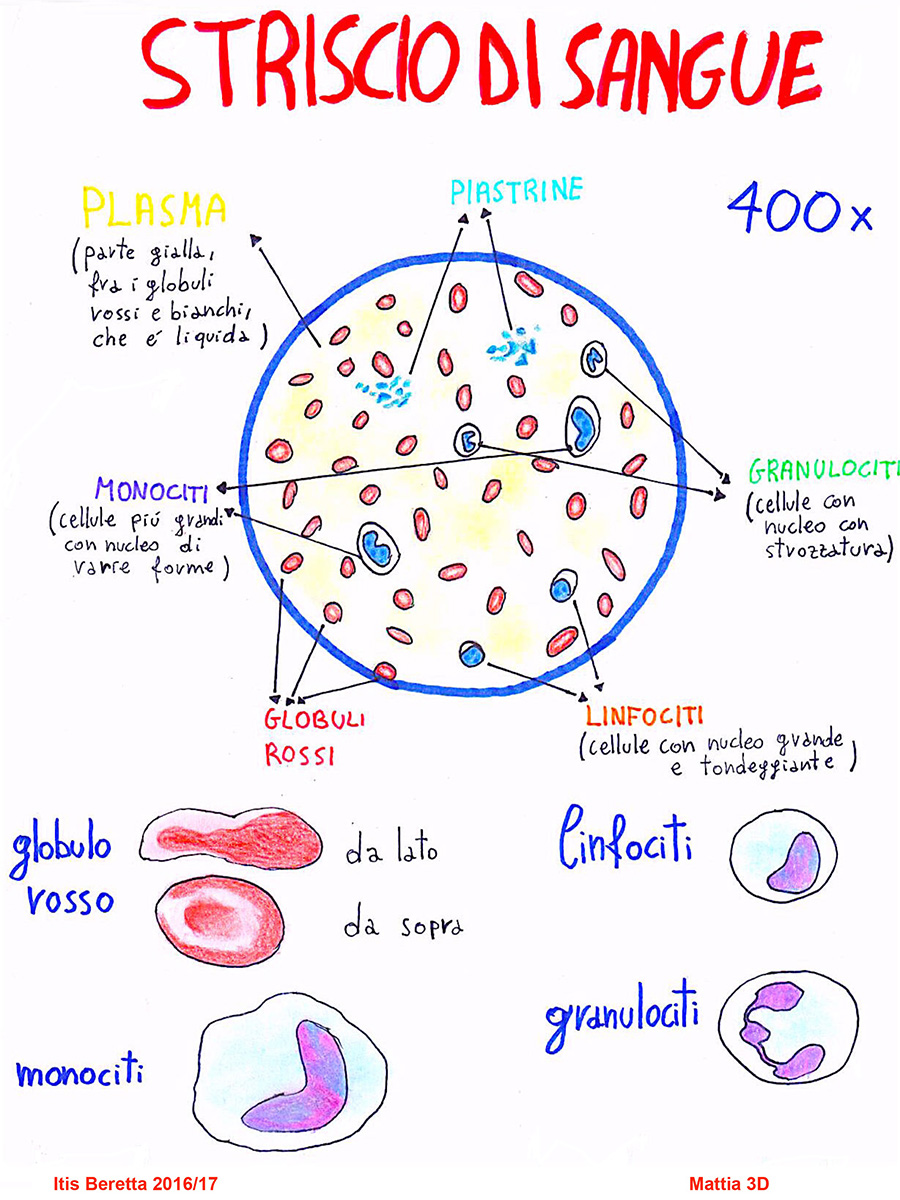 STRISCIO DI SANGUE
PLASMA
(parte gialla,
fra i globuli
rossi e bianchi,
che é liquida)
PIASTRINE
400x
MONOCITI
(cellule piú grandi
con nucleo di
varie forme)
GRANULOCITI
(cellule con
nucleo con
strozzatura)
GLOBULI
ROSSI
LINFOCITI
(cellule con nucleo grande
e tondeggiante)
globulo
rosso
da lato
da sopra
linfociti
granulociti
monociti
Itis Beretta 2016/17
Mattia 3D